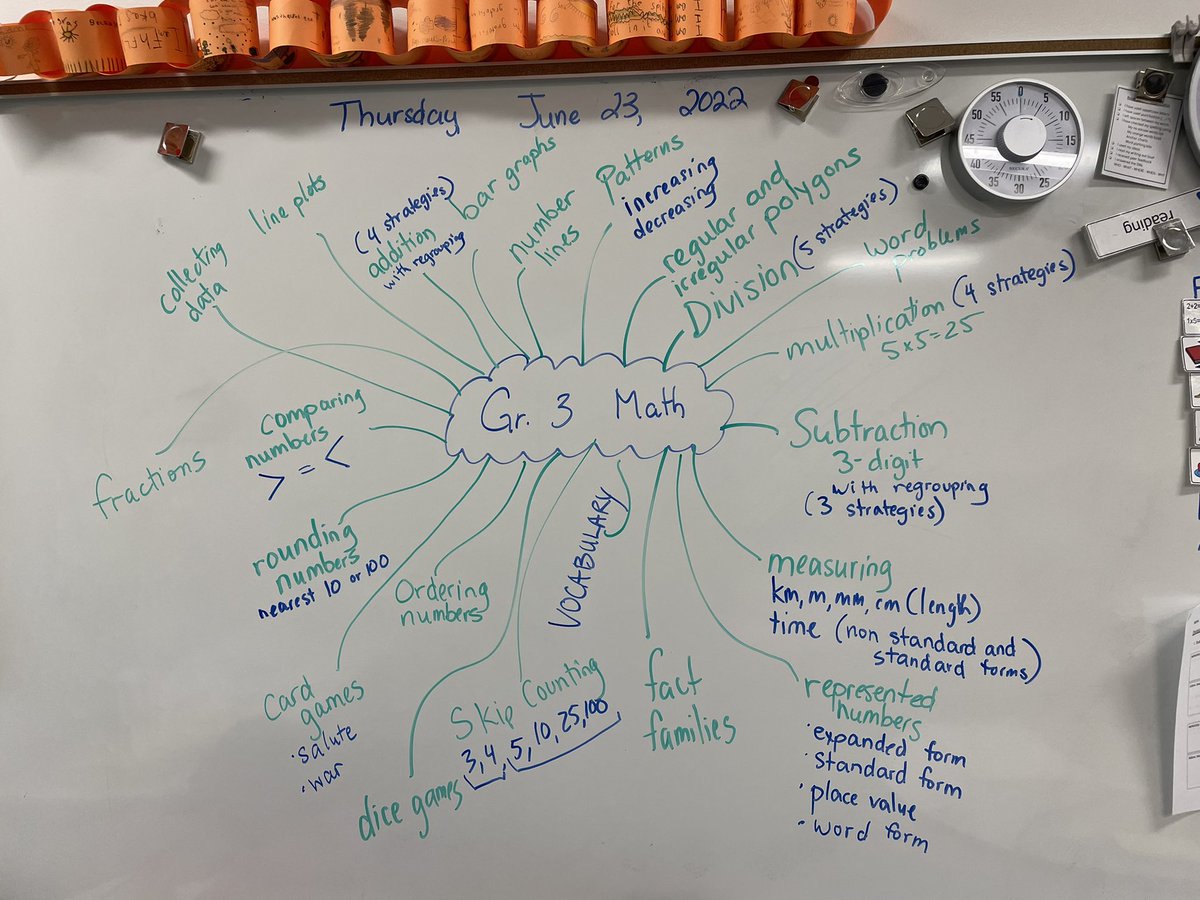 Thursday June 23, 2022
line plots
(4 strategies)
addition
with regrouping
bar graphs
number
lines
Patterns
increasing
decreasing
regular and
irregular polygons
Division (5 strategies)
word
problems
multiplication (4 strategies)
5x5=25
collecting
data
Gr. 3 Math
fractions
comparing
numbers
> = <
Subtraction
3-digit
with regrouping
(3 strategies)
rounding
numbers
nearest 10 or 100
Ordering
numbers
VOCABULARY
measuring
km, m, mm, cm (length)
time (non standard and
standard forms)
card
games
·salute
·war
dice games
Skip Counting
3, 4, 5, 10, 25, 100
fact
families
represented
numbers
·expanded form
·standard form
·place value
·word form
55 0 5
50 10
45 15
40 20
35 30 25
reading